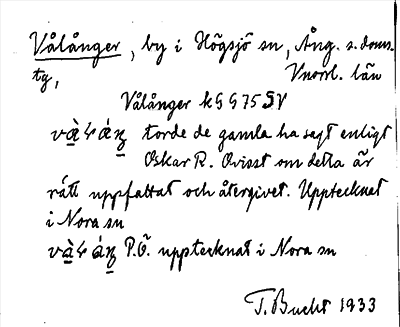 Vålånger, by i Högsjö sn, Ång. s. doms.
tg, Vnorrl. län
Vålånger k G G 75 SV
torde de gamla ha sagt enligt
Oskar R. Qvisst om detta är
rätt uppfattat och återgivet. Upptecknat
i Nora sn
P.Ö. upptecknat i Nora sn
T. Bucht 1933